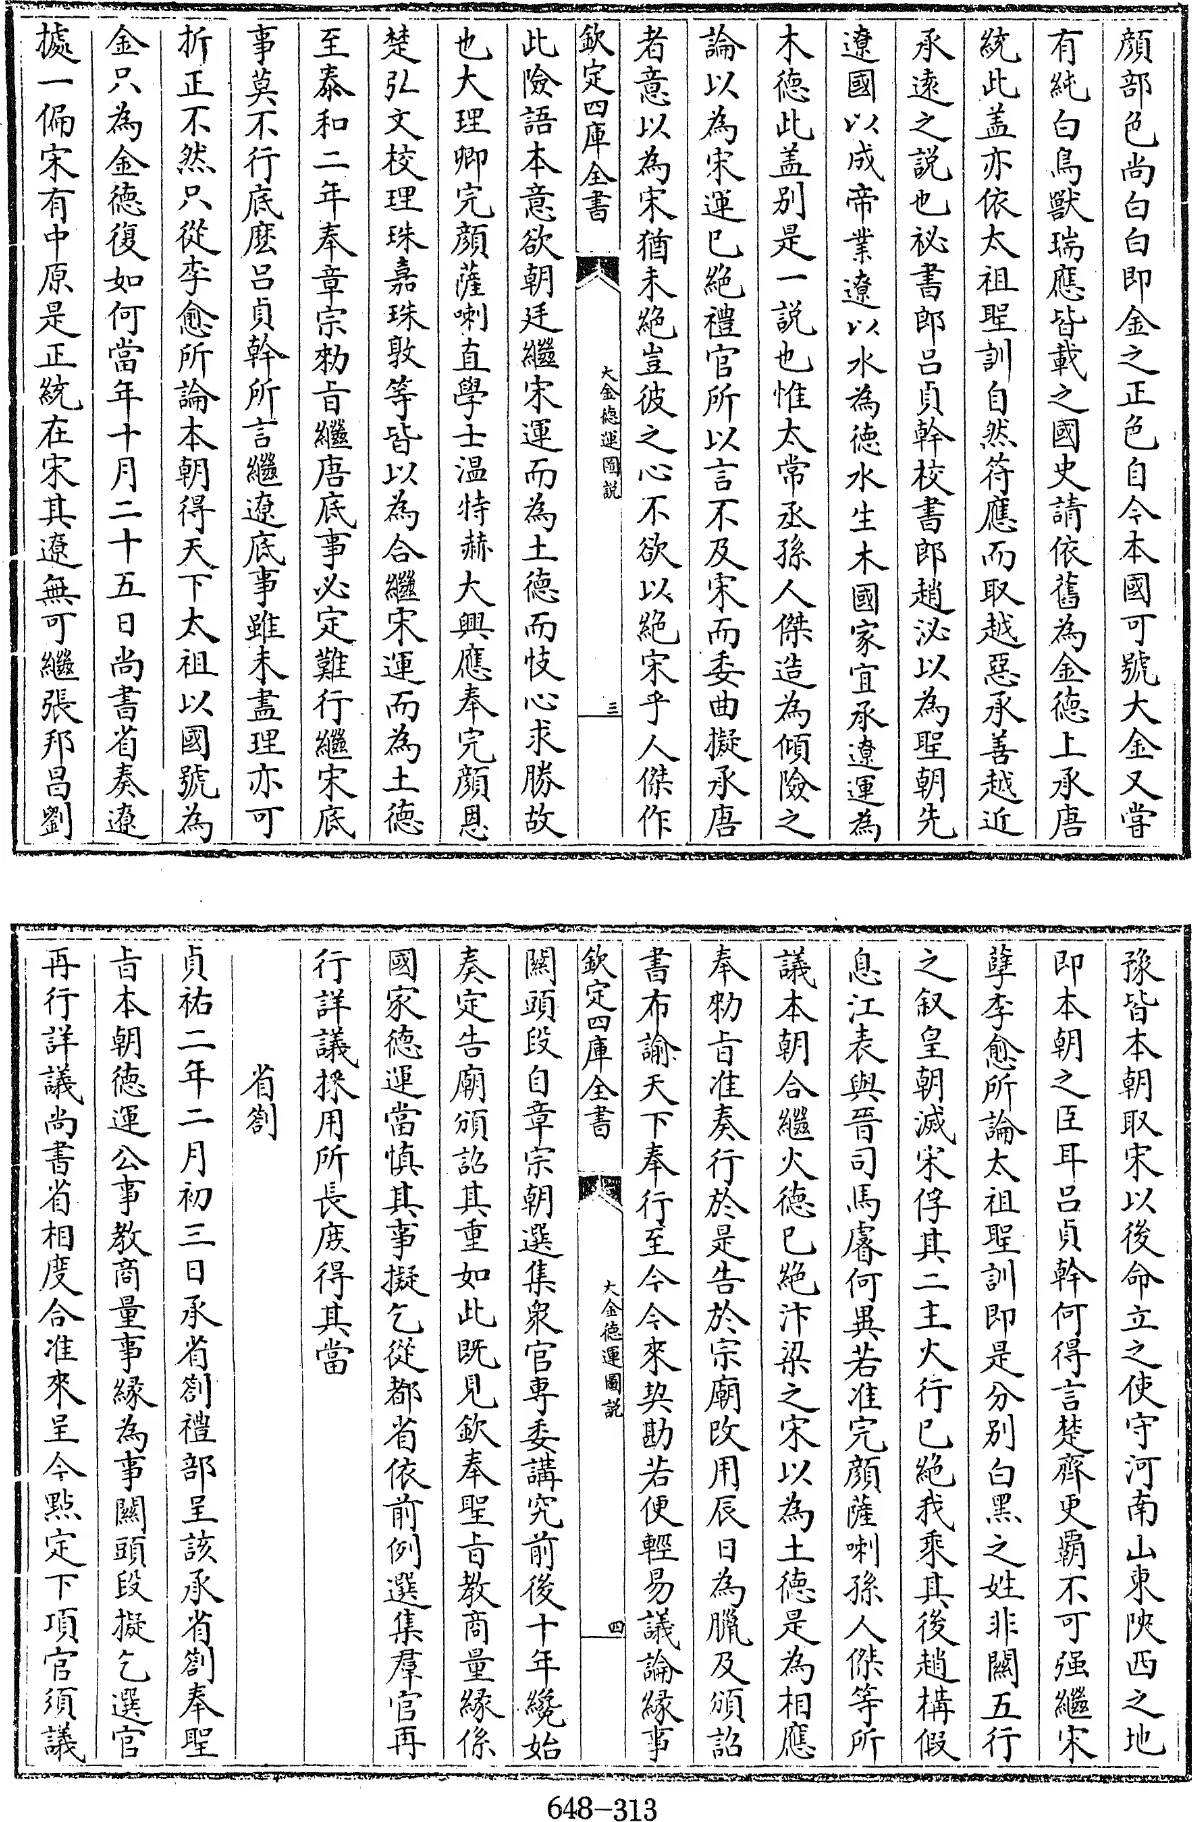 顔部色尚白白即金之正色自今本國可號大金又嘗
有純白鳥獸瑞應皆載之國史請依舊為金徳上承唐
統此盖亦依太祖聖訓自然符應而取越惡承善越近
承逺之説也祕書郎吕貞幹校書郎趙泌以為聖朝先
遼國以成帝業遼以水為徳水生木國家宜承遼運為
木徳此盖别是一説也惟太常丞孫人傑造為傾險之
論以為宋運已絶禮官所以言不及宋而委曲擬承唐
者意以為宋猶未絶豈彼之心不欲以絶宋乎人傑作
欽定四庫全書
大金徳運圖説
三
此險語本意欲朝廷繼宋運而為土徳而忮心求勝故
也大理卿完顔薩喇直學士温特赫大興應奉完顔恩
楚弘文校理珠嘉珠敦等皆以為合繼宋運而為土徳
至泰和二年奉章宗勅旨繼唐底事必定難行繼宋底
事莫不行底麽吕貞幹所言繼遼底事雖未盡理亦可
折正不然只從李愈所論本朝得天下太祖以國號為
金只為金徳復如何當年十月二十五日尚書省奏遼
據一偏宋有中原是正統在宋其遼無可繼張邦昌劉
豫皆本朝取宋以後命立之使守河南山東陜西之地
即本朝之臣耳吕貞幹何得言楚齊更霸不可强繼宋
孽李愈所論太祖聖訓即是分别白黑之姓非關五行
之叙皇朝滅宋俘其二主火行已絶我乘其後趙構假
息江表與晉司馬睿何異若准完顔薩喇孫人傑等所
議本朝合繼火徳已絶汴梁之宋以為土徳是為相應
奉勅旨准奏行於是告於宗廟改用辰日為臘及頒詔
書布諭天下奉行至今今來契勘若便輕易議論縁事
欽定四庫全書
大金徳運圖説
四
關頭段自章宗朝選集衆官専委講究前後十年纔始
奏定告廟頒詔其重如此既見欽奉聖旨教商量縁係
國家徳運當慎其事擬乞從都省依前例選集羣官再
行詳議採用所長庶得其當
省劄
貞祐二年二月初三日承省劄禮部呈該承省劄奉聖
旨本朝徳運公事教商量事縁為事關頭段擬乞選官
再行詳議尚書省相度合准來呈今㸃定下項官須議
648-313